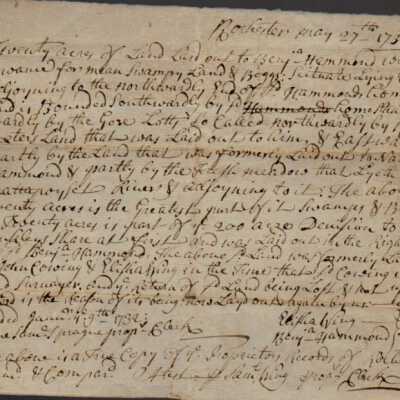 Rochester may 27th 173
Twenty acres of Land Laid out to Benj:a Hammond
for mean Swampy Land & Boggs: Scituate Lying &
adjoyning to the northwardly End of sd Hammonds home
is Bounded Southwardly by sd Hammonds homestead
wardly by the Gore Lotts so Called northwardly by
Land that was Laid out to him, & East
partly by the Land that was formerly Laid out to Na
Hammond & partly by the fresh meadow that Lyeth
mattapoyset River & adjoyning to it: The abov
twenty acres is the Greatest part of it Swamps & B
Twenty acres is part of ye 200 acre Devision to
Share at first and was Laid out in the Righ
of Benj:a Hammond. The above sd Land was formerly La
John Cowing & Elisha Wing in the time that sd Cowing
Survayer. and ye return of sd Land being Lost & not
is the Reason of its being now Laid out again by us:
June ye 9th 1732: Elisha Wing
Saml Sprague propr Clark Benj:a Hammond
above is a True Copy of ye Proprietors Records of Ro
& Compard Attest pr Saml Wing propr Clark